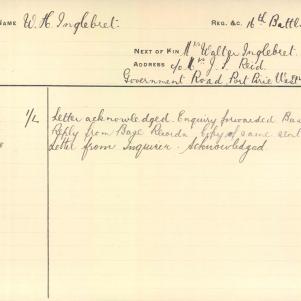 NAME W. H. Inglebret. REG. &C. 16th Battl
NEXT OF KIN Mrs Walter Inglebret.
ADDRESS c/o Mrs J. S. Reid.
Government Road Port Pirie West
1/2 Letter acknowledged. Enquiry forwarded Bas
Reply from Base Records Copy of same sent
Letter from Inquirer. Acknowledged